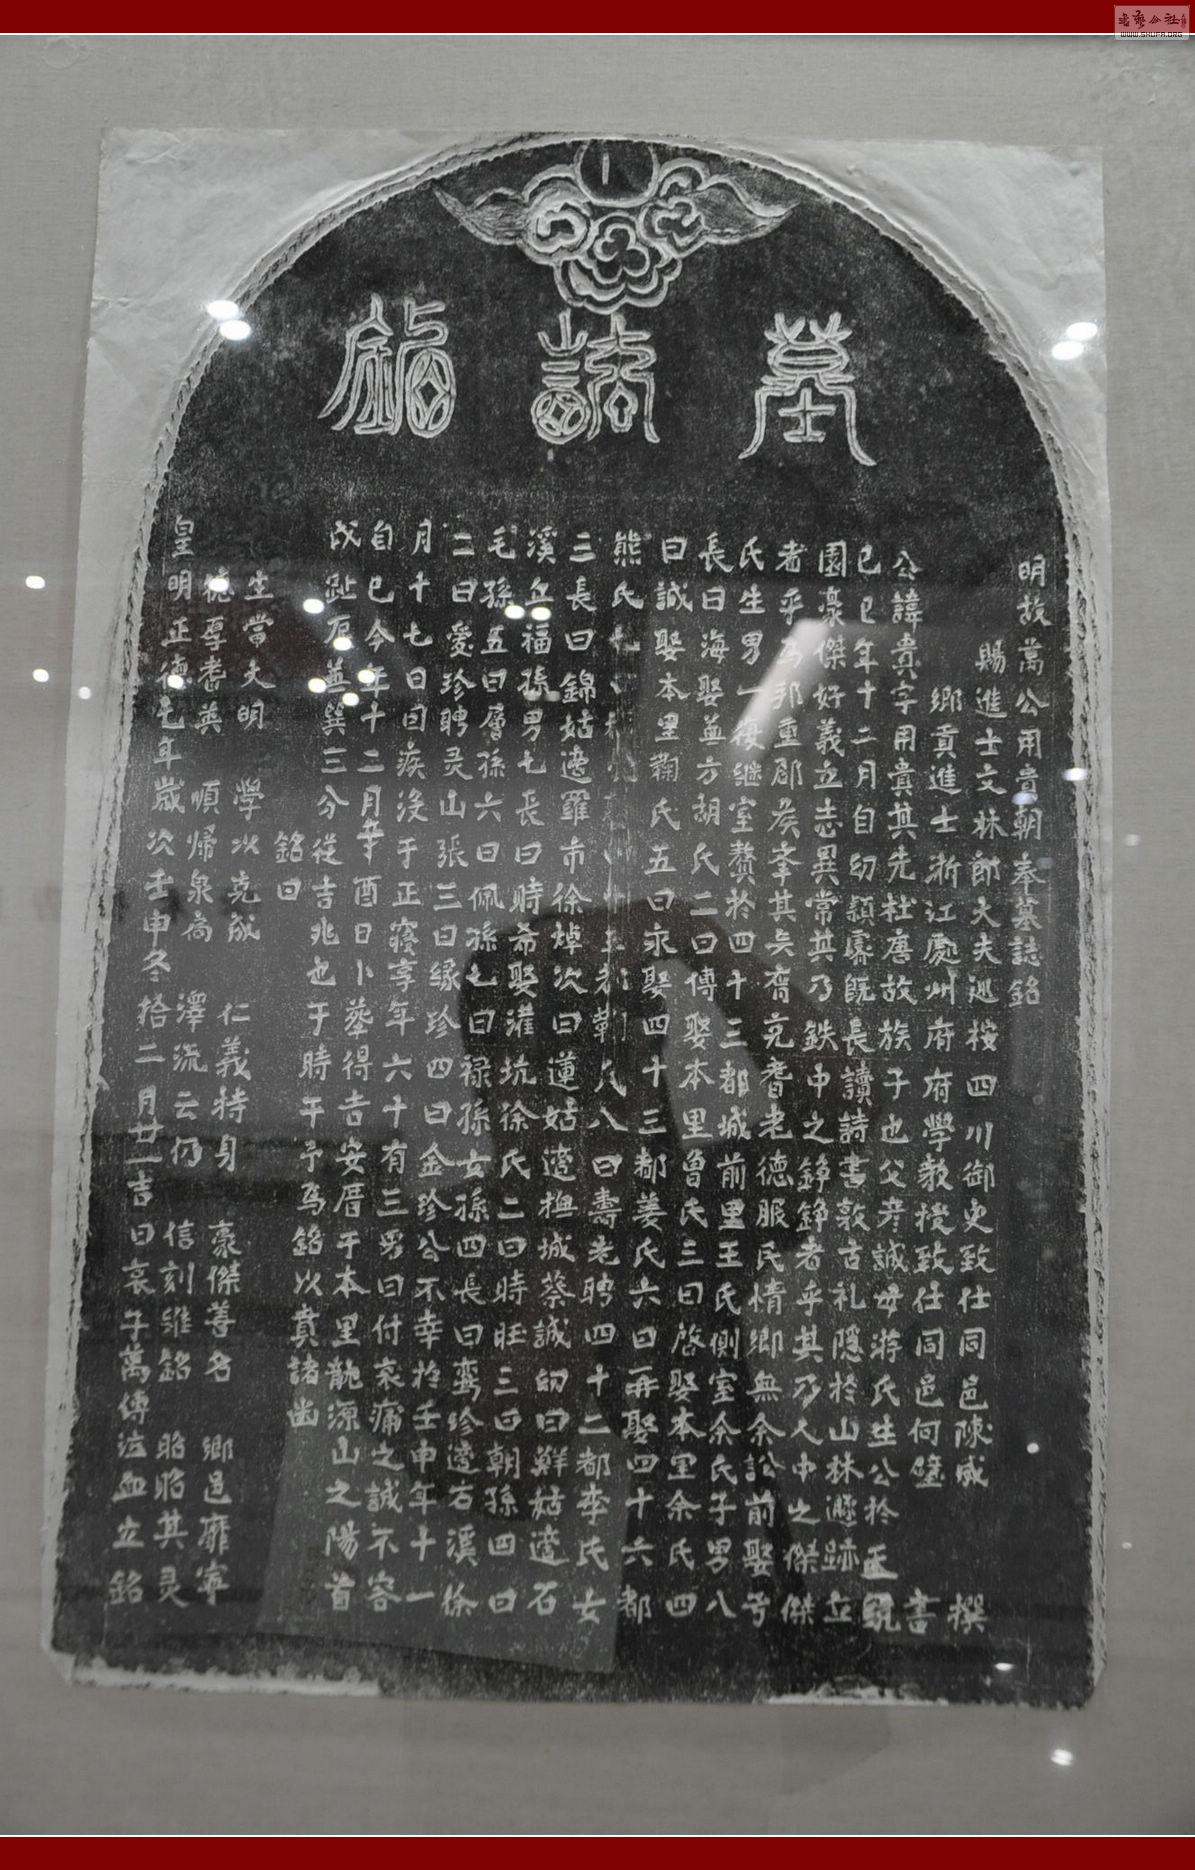 墓誌銘
明故萬公用貴朝奉墓誌銘
賜進士文林郎大夫巡按四川御史致仕同邑陳威撰
鄉貢進士浙江處州府府學教授致仕同邑何鏜書
公諱貴字用貴其先杜唐故族子也父彥誠母游氏生公於正統
己巳年十二月自幼穎靈既長讀詩書敦古礼隱於山林遯跡丘
園豪傑好義立志異常其乃鉄中之錚錚者乎其乃人中之傑傑
者乎為邦重郡侯峯其矣膺充耆老德服民情鄉無余訟前娶亐
氏生男一後継室龔於四十三都城前里王氏側室余氏子男八
長曰海娶蓋方胡氏二曰傅娶本里魯氏三曰啓娶本里余氏四
曰誠娶本里鞠氏五曰永娶四十三都姜氏六曰再娶四十六都
熊氏七曰 氏八曰壽老聘四十二都李氏女
三長曰錦姑適羅市徐焯次曰蓮姑適櫸城蔡誠幼曰鮮姑適石
溪丘福孫男七長曰時希娶灌坑徐氏二曰時旺三曰朝孫四曰
毛孫五曰層孫六曰佩孫七曰禄孫女孫四長曰鸾珍適右溪徐
二曰愛珍聘灵山張三曰緣珍四曰金珍公不幸於壬申年十一
月十七日因疾沒于正寢享年六十有三男曰付哀痛之誠不容
自已今年十二月辛酉日卜葬得吉安厝于本里龍源山之陽首
戌趾辰蓋巽三分從吉兆也于時午予為銘以賁諸幽
銘曰
生當大明 學以克成 仁義持身 豪傑善名 鄉邑靡寧
德厚耆英 順帰泉扃 澤流云仍 信刻維銘 昭昭其灵
皇明正德七年歲次壬申冬搭二月廿一吉日哀子萬傅泣血立銘
書藝公社
WWW.SHUFA.ORG